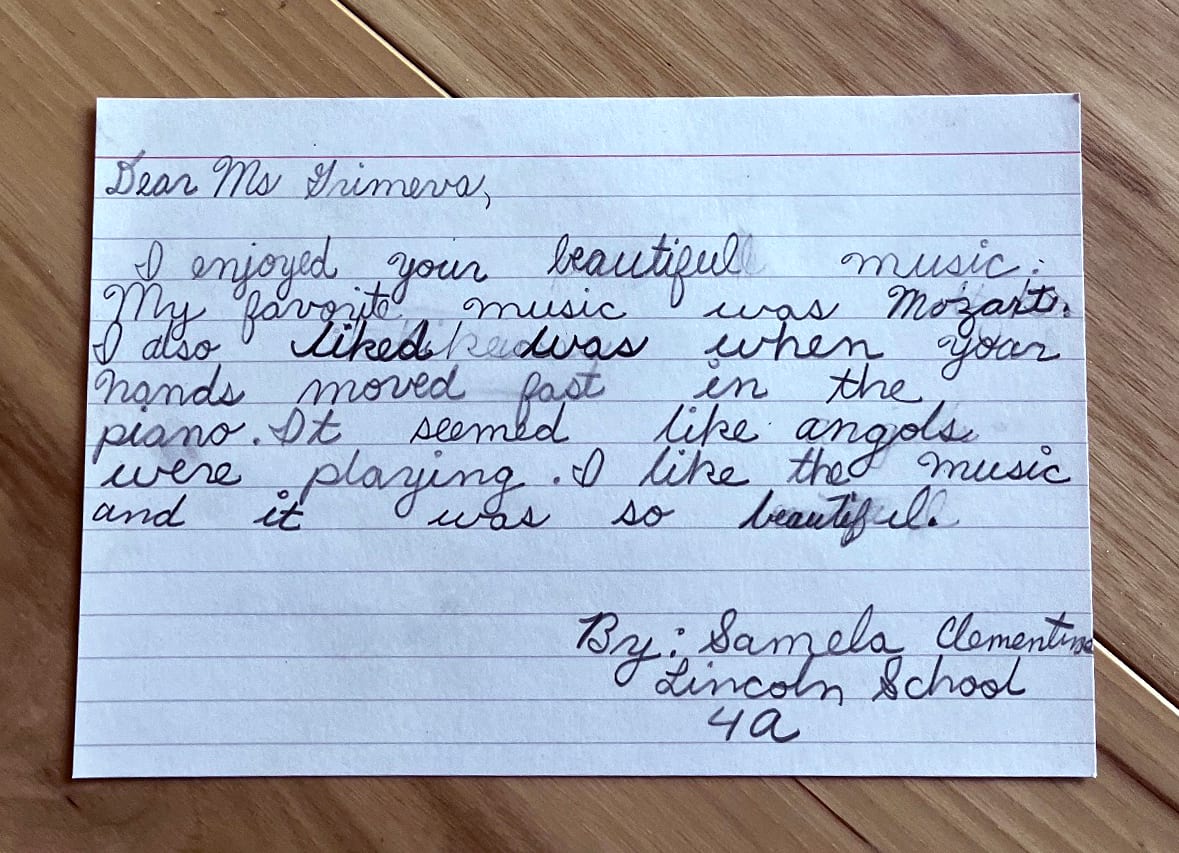 Dear Ms Grimeva,
I enjoyed your beautiful music.
My favorite music was Mozart.
I also liked was when your
hands moved fast in the
piano. It seemed like angols
were playing. I like the music
and it was so beautiful.
By: Samela Clementine
Lincoln School
4A